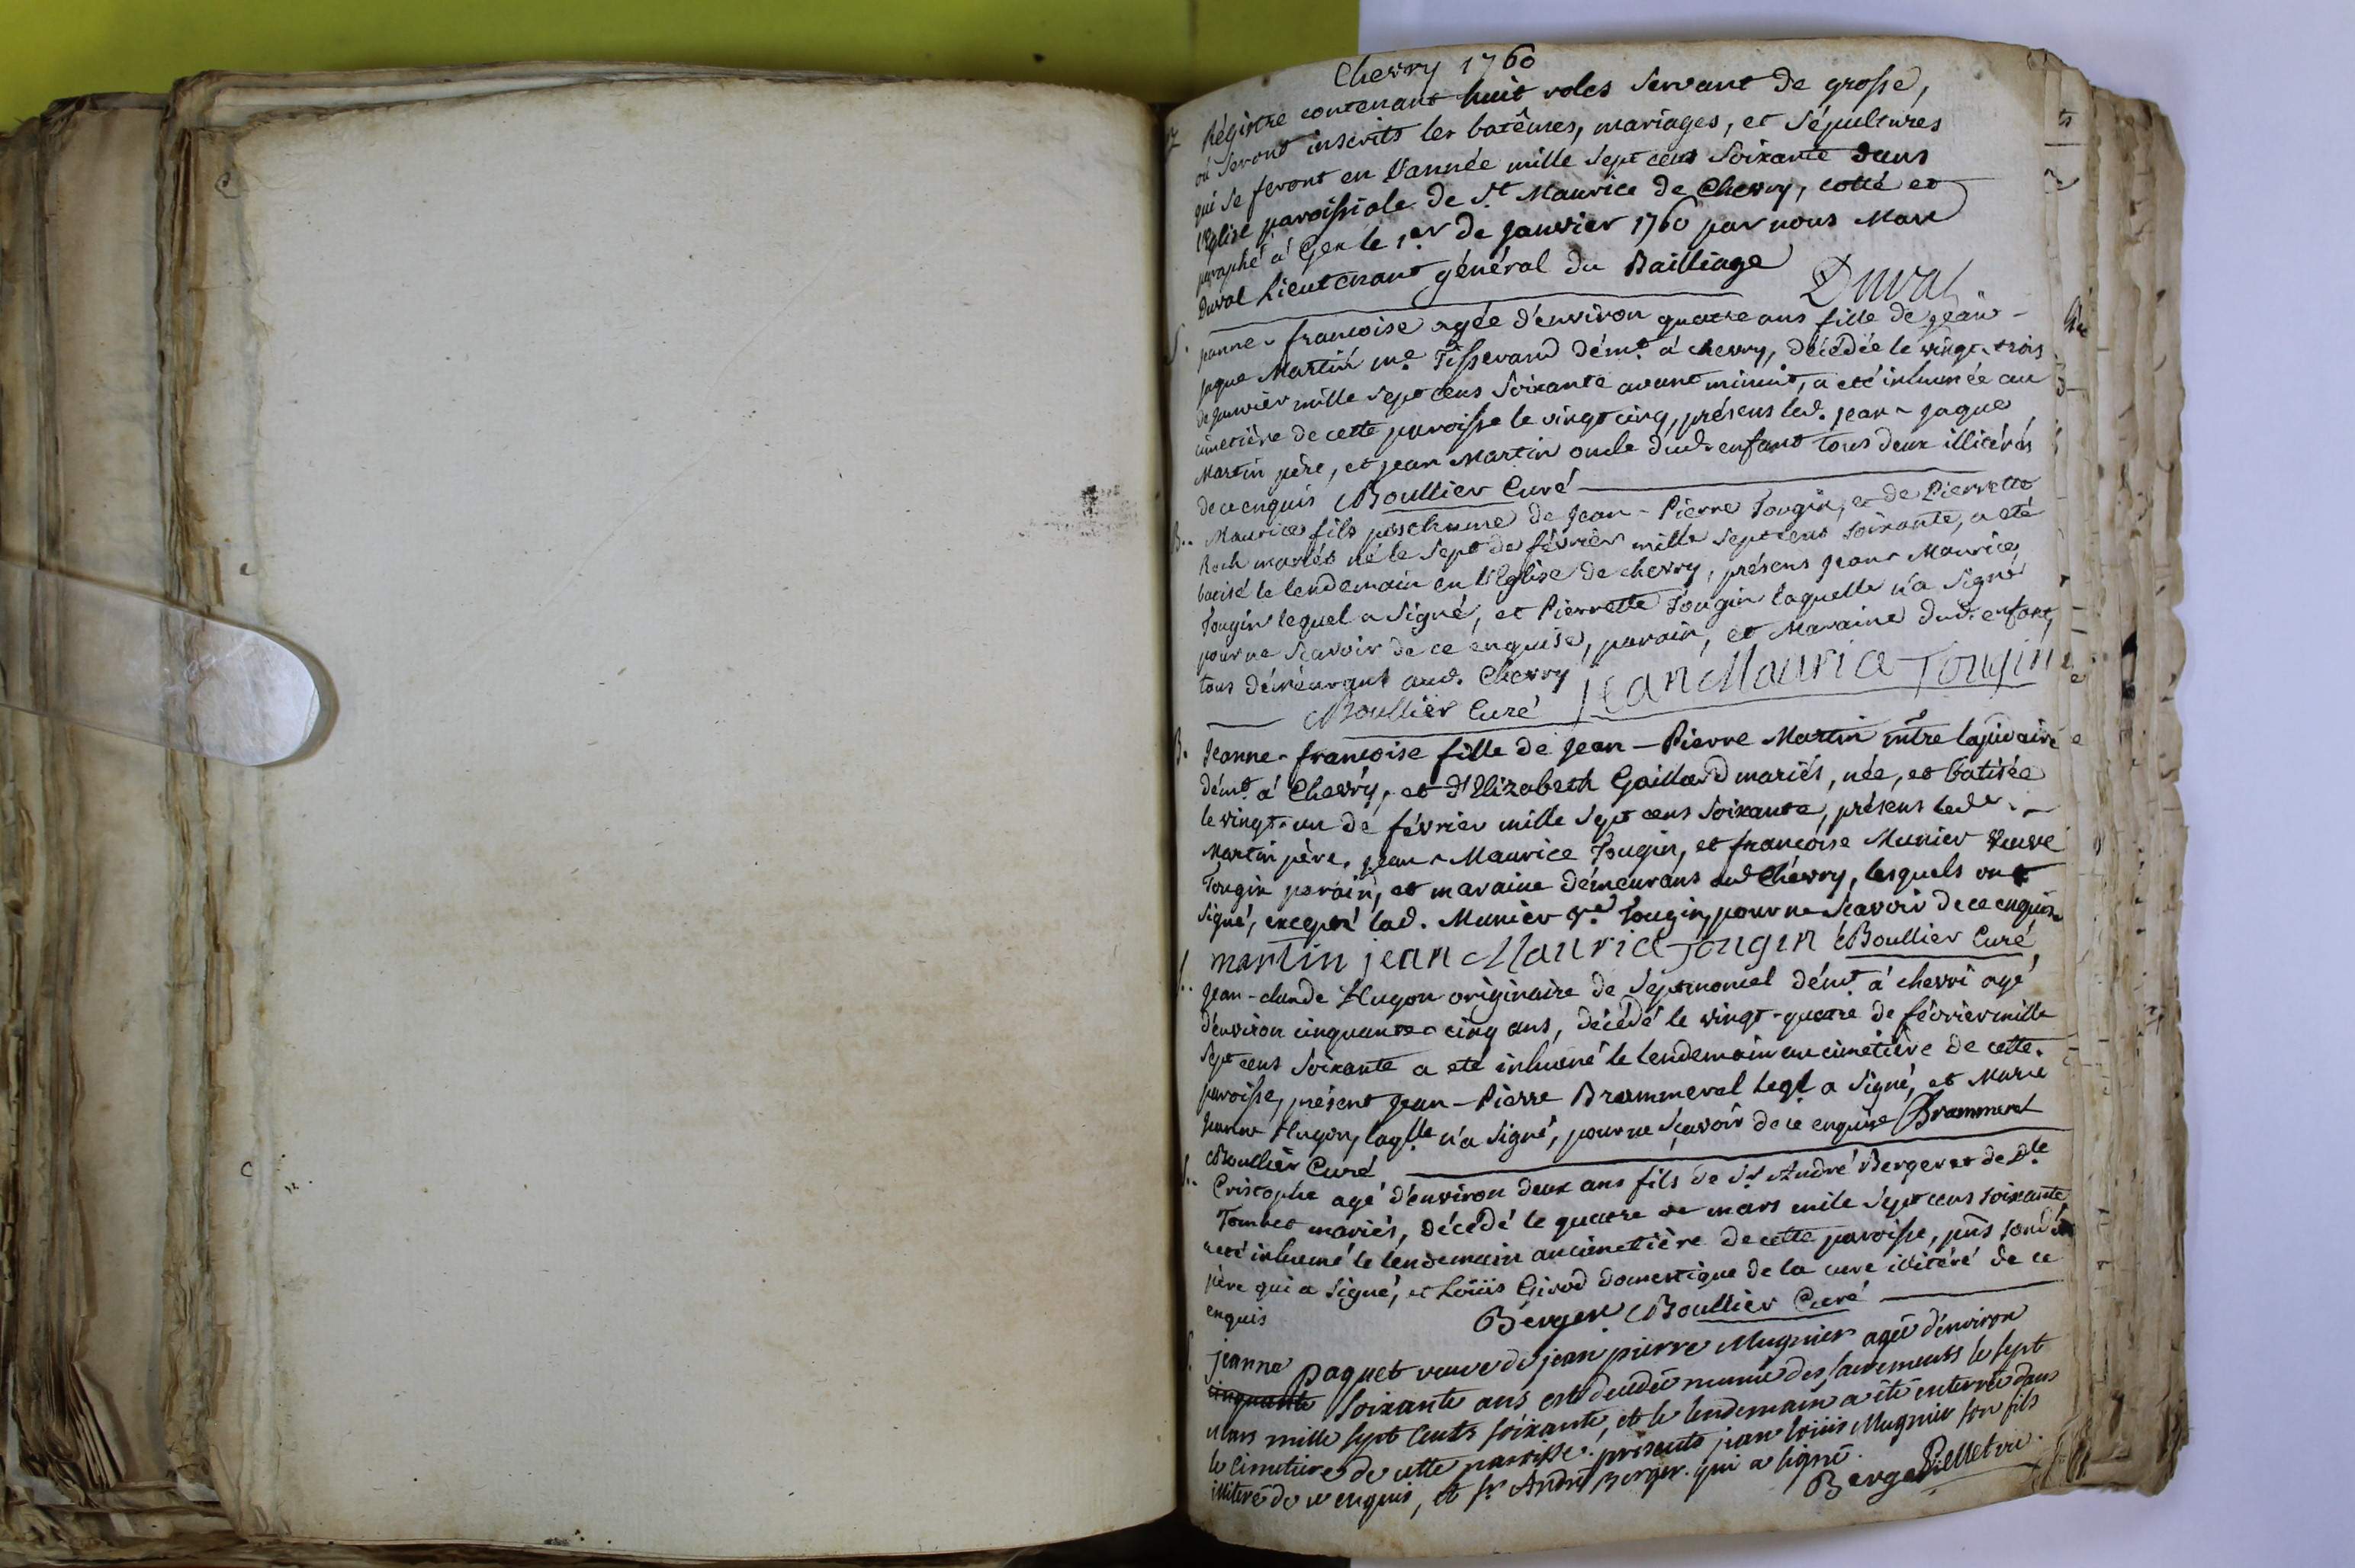 Chevry 1760
Régistre contenant huit roles servant de grosse,
où seront inscrits les batêmes, mariages, et sépultures
qui se feront en l'année mille sept cens soixante dans
l'Eglise paroissiale de St Maurice de Chevry, cotté et
paraphé à Gex le 1er de janvier 1760 par nous Marc
Duval Lieutenant général du Bailliage
Duval
S. Jeanne-francoise agée d'environ quatre ans fille de jean-
jaque Martin me Tisserand démt à chevry, décédée le vingt-trois
de janvier mille sept cens soixante avant minuit, a eté inhumée au
cimetière de cette paroisse le vingt cinq, présens led. jean-jaque
Martin père, et jean Martin oncle dud. enfant tous deux illitérés
de ce enquis Boullier Curé
B.. Maurice fils posthume de Jean-Pierre Tougin, et de Pierrette
Roch mariés né le sept de février mille sept cens soixante, a eté
batisé le lendemain en l'Eglise de chevry, présens jean-Maurice
Tougin lequel a signé, et Pierrette Tougin laquelle n'a signé
pour ne scavoir de ce enquise, parain, et Maraine dud. enfant,
tous démeurant aud. Chevry jean Maurice Tougin
Boullier Curé
B. Jeanne-francoise fille de Jean-Pierre Martin mtre lapidaire
démt à Chevry, et d'Elizabeth Gaillard mariés, née, et batisée
le vingt-un de février mille sept cens soixante, présens led.
Martin père, jean-Maurice Tougin, et francoise Munier veuve
Tougin parain, et maraine démeurans aud Chevry, lesquels ont
signé, excepté lad. Munier ve Tougin, pour ne scavoir de ce enquise
martin jean Maurice Tougin Boullier Curé
S.. Jean-claude Hugon originaire de Septmoncel démt à chevri agé
d'environ cinquante-cinq ans, décédé le vingt-quatre de février mille
sept cens soixante a eté inhumé le lendemain au cimetière de cette
paroisse, présent Jean-Pierre Brammerel leql a signé, et Marie
Jeanne Hugon, laqlle n'a signé, pour ne scavoir de ce enquise Brammerel
Boullier Curé
S.. Cristophe agé d'environ deux ans fils de Sr André Berger et de Dle
Tombet mariés, décédé le quatre de mars mille sept cens soixante
a eté inhumé le lendemain au cimetière de cette paroisse, pns
père qui a signé, et Loüis Girod domestique de la cure illitéré de ce
enquis Berger Boullier Curé
S. jeanne Paquet veuve de jean pierre Mugnier agée d'environ
cinquante soixante ans est decedée munie des sacrements le sept
mars mille sept cents soixante, et le lendemain a été enterrée dans
le cimetiere de cette paroisse. presents jean loüis Mugnier son fils
illiteré de ce enquis, et sr André Berger qui a signé.
Berger